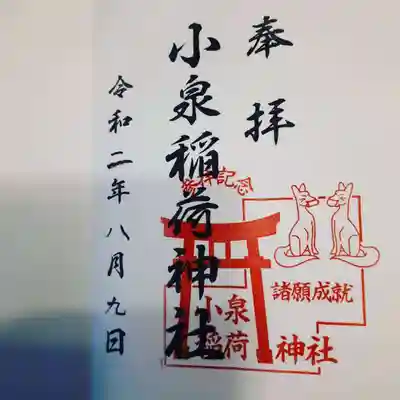 奉拝
小泉稲荷神社
令和二年八月九日
参拝記念
諸願成就
小泉
稲荷
神社